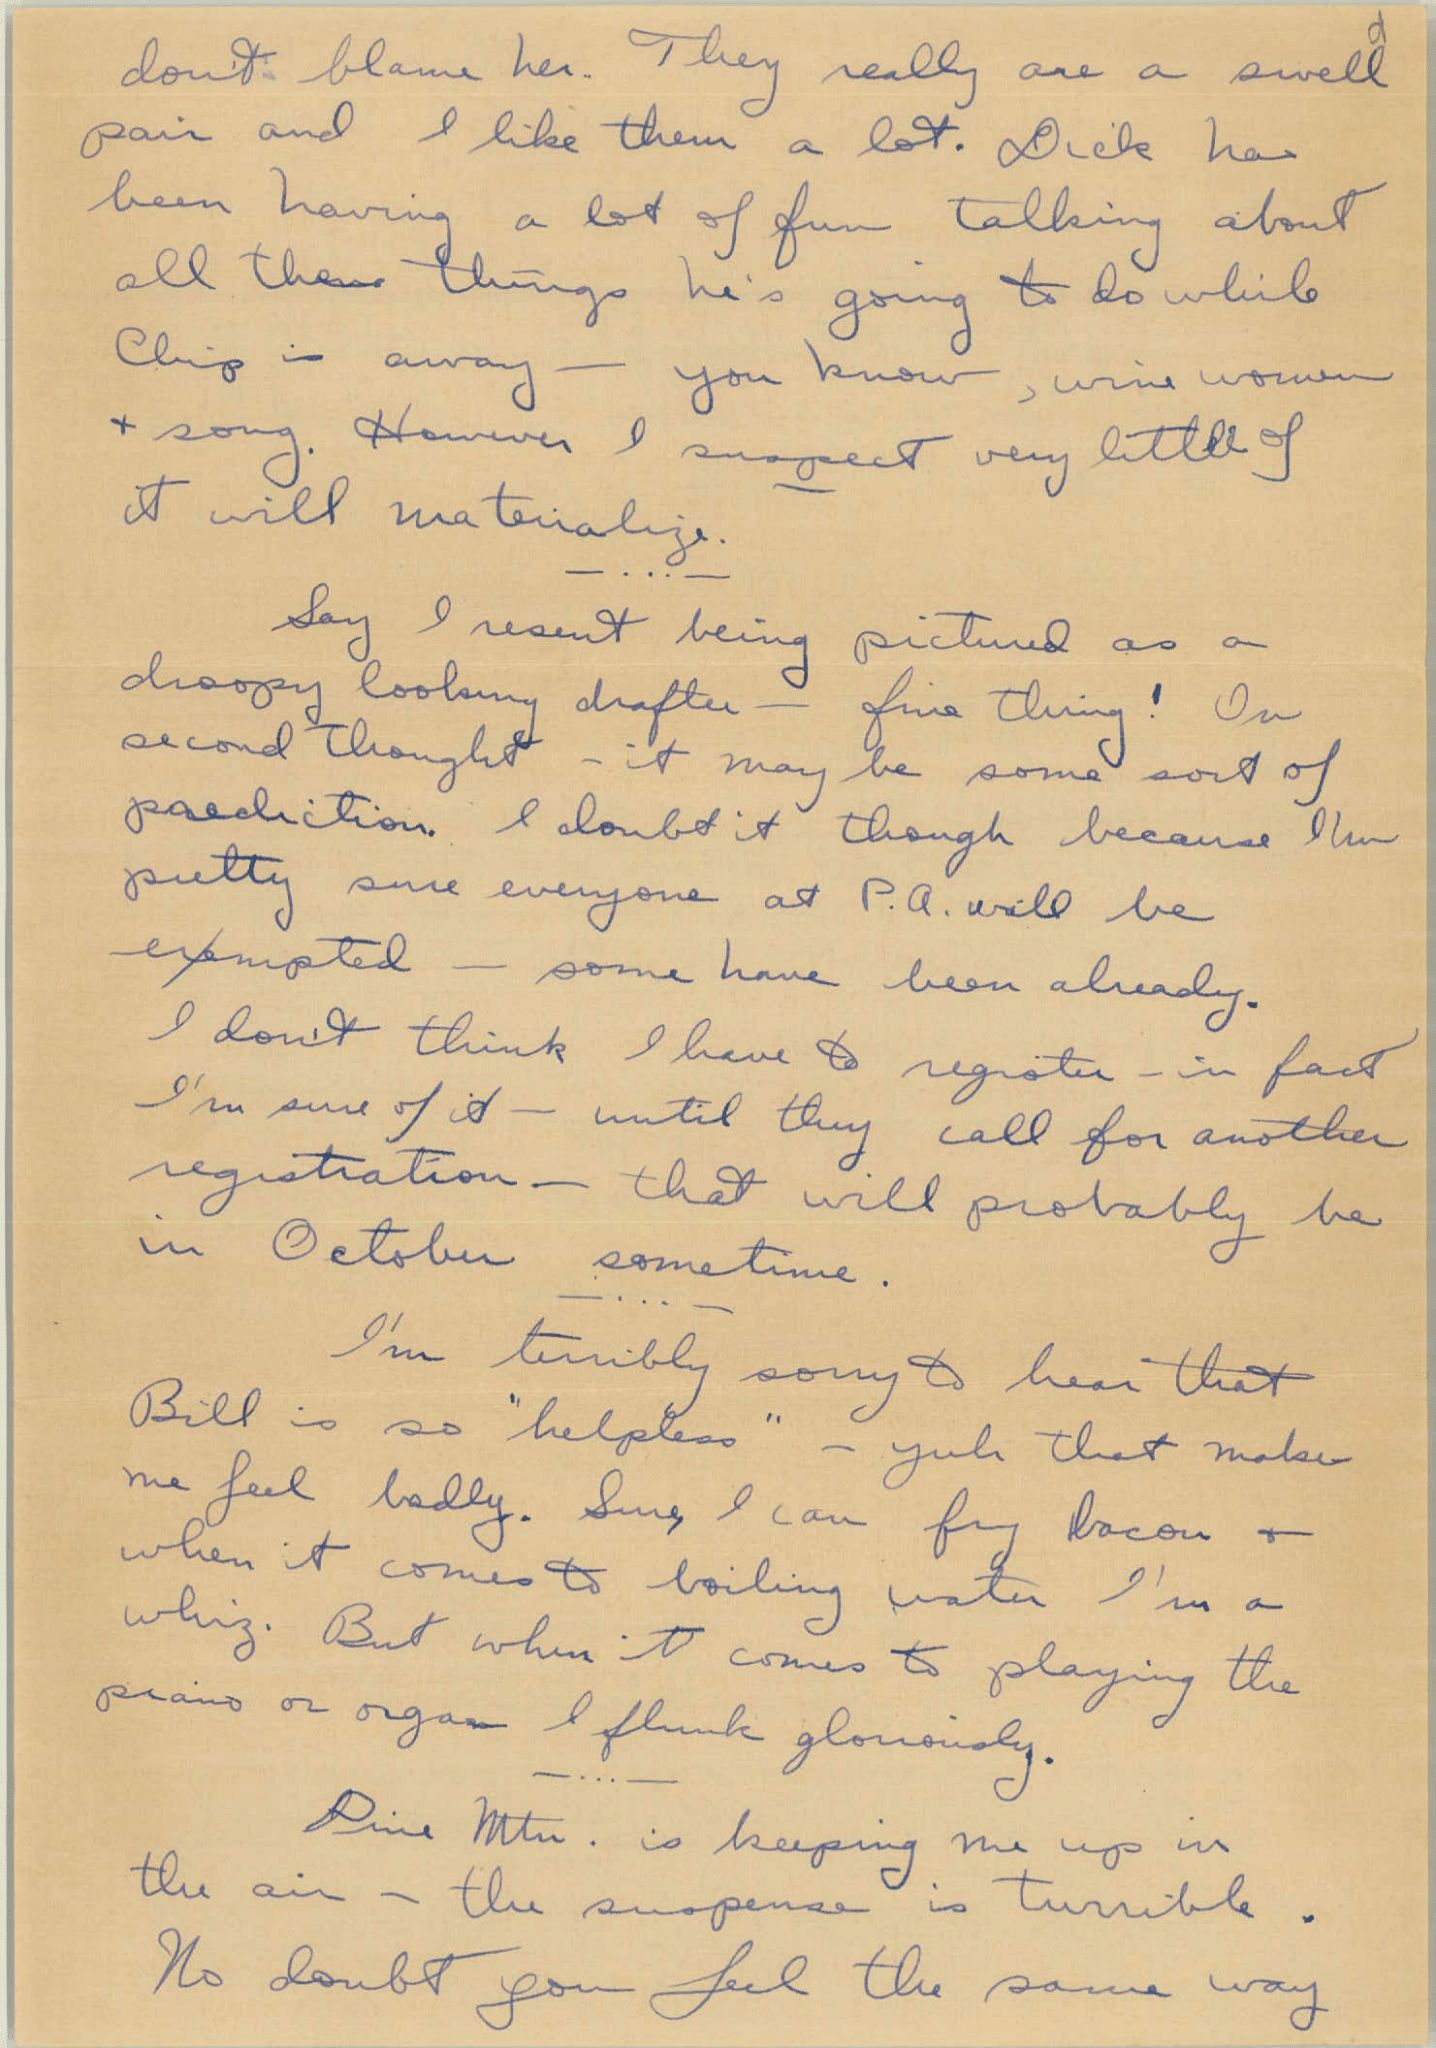 d
don't blame her. They really are a swell
pair and I like them a lot. Dick has
been having a lot of fun talking about
all these things he's going to do while
Chip is away — you know, wine women
+ song. However I suspect very little of
it will materialize.
— ... —
Say I resent being pictured as a
droopy looking draftee — fine thing! On
second thought - it may be some sort of
prediction. I doubt it though because I'm
pretty sure everyone at P.A. will be
exempted — some have been already.
I don't think I have to register - in fact
I'm sure of it — until they call for another
registration — that will probably be
in October sometime.
— ... —
I'm terribly sorry to hear that
Bill is so "helpless" - yuh that makes
me feel badly. Sure, I can fry bacon +
when it comes to boiling water I'm a
whiz. But when it comes to playing the
piano or organ I flunk gloriously.
— ... —
Pine Mtn. is keeping me up in
the air - the suspense is turrible.
No doubt you feel the same way